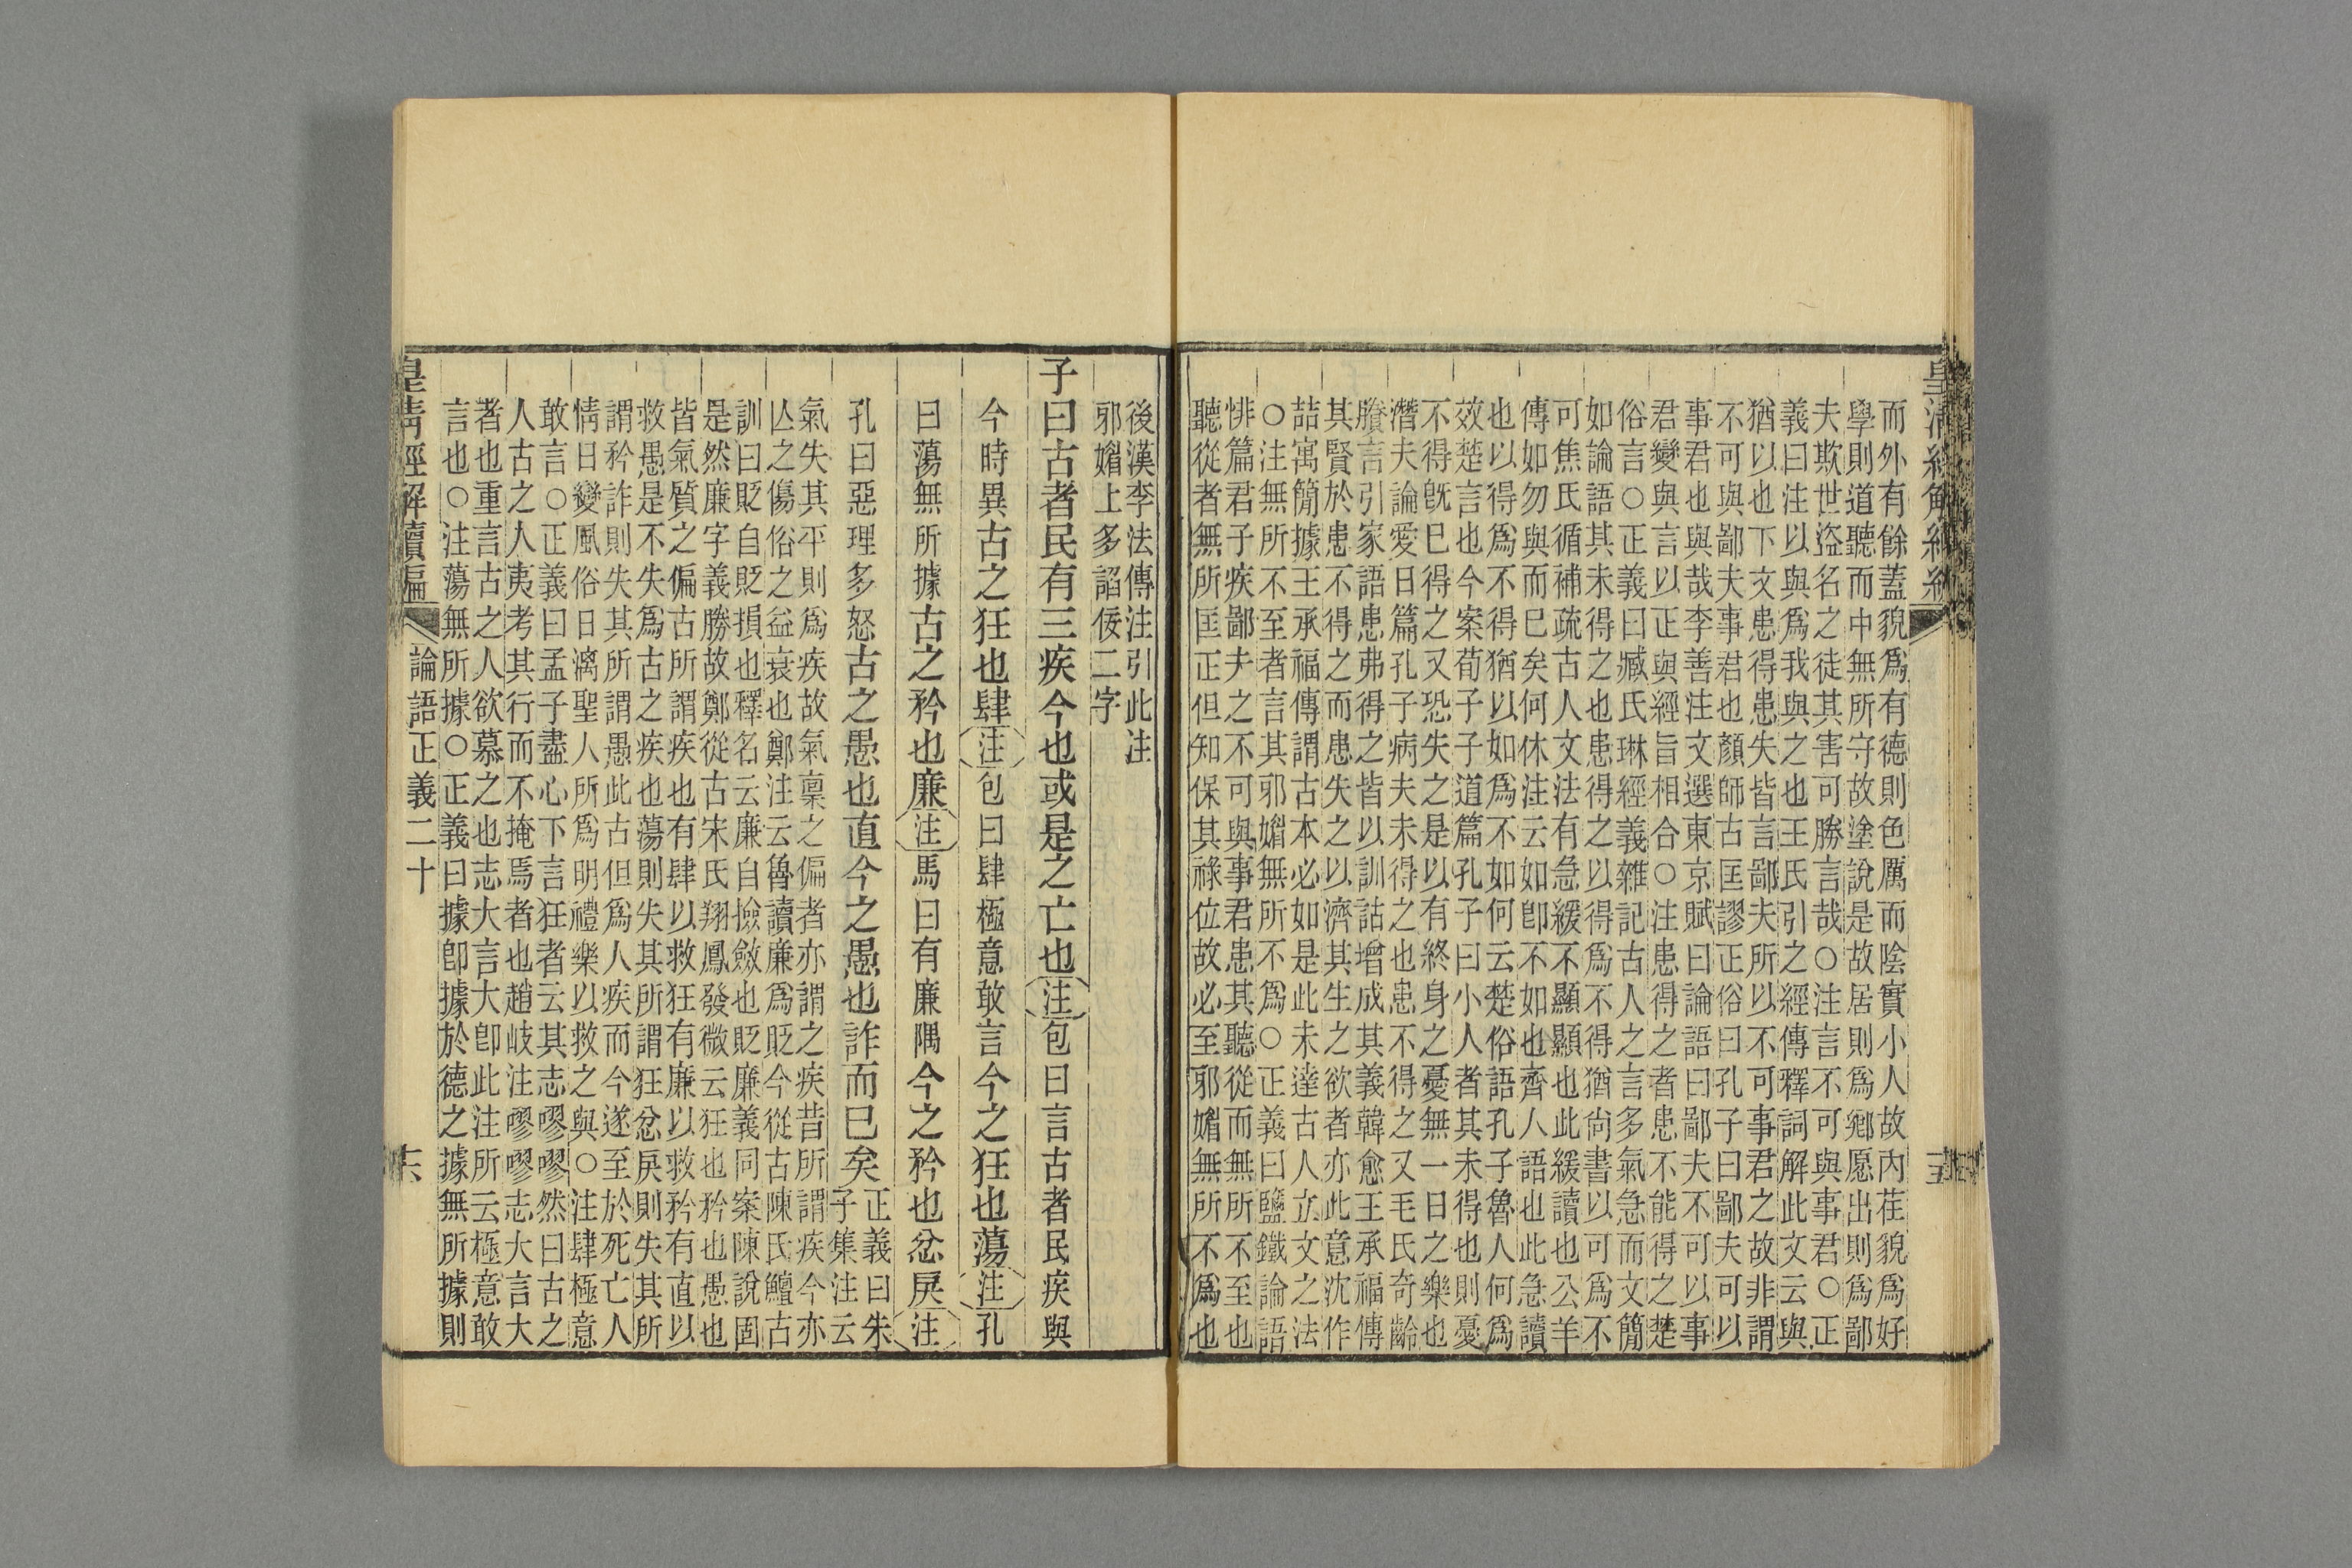 而外有餘蓋貌爲有德則色厲而陰實小人故內荏貌爲好
學則道聽而中無所守故塗說是故居則爲鄉愿出則爲鄙
夫欺世盜名之徒其害可勝言哉○注言不可與事君○正
義曰注以與爲我與之也王氏引之經傳釋詞解此文云與
猶以也下文患得患失皆言鄙夫所以不可事君之故非謂
不可與鄙夫事君也顏師古匡謬正俗曰孔子曰鄙夫可以
事君也與哉李善注文選東京賦曰論語曰鄙夫不可以事
君變與言以正與經旨相合○注患得之者患不能得之楚
俗言○正義曰臧氏琳經義雜記古人之言多氣急而文簡
如論語其未得之也患得之以得爲不得猶尙書以可爲不
可焦氏循補疏古人文法有急緩不顯顯也此緩讀也公羊
傳如勿與而巳矣何休注云如卽不如也齊人語也此急讀
也以得爲不得猶以如爲不如何云楚俗語孔子魯人何爲
效楚言也今案荀子子道篇孔子曰小人者其未得也則憂
不得旣巳得之又恐失之是以有終身之憂無一日之樂也
潛夫論愛日篇孔子病夫未得之也患不得之又毛氏奇齡
賸言引家語患弗得之皆以訓詁增成其義韓愈王承福傳
其賢於患不得之而患失之以濟其生之欲者亦此意沈作
喆寓簡據王承福傳謂古本必如是此未達古人立文之法
○注無所不至者言其邪媚無所不爲○正義曰鹽鐵論語
悱篇君子疾鄙夫之不可與事君患其聽從而無所不至也
聽從者無所匡正但知保其祿位故必至邪媚無所不爲也
後漢李法傳注引此注
邪媚上多諂佞二字
子曰古者民有三疾今也或是之亡也注包曰言古者民疾與
今時異古之狂也肆注包曰肆極意敢言今之狂也蕩注孔
曰蕩無所據古之矜也廉注馬曰有廉隅今之矜也忿戾注
孔曰惡理多怒古之愚也直今之愚也詐而巳矣正義曰朱
子集注云
氣失其平則爲疾故氣稟之偏者亦謂之疾昔所謂疾今亦
亾之傷俗之益衰也鄭注云魯讀廉爲貶今從古陳氏鱣古
訓曰貶自貶損也釋名云廉自撿斂也貶廉義同案陳說固
是然廉字義勝故鄭從古宋氏翔鳳發微云狂也矜也愚也
皆氣質之偏古所謂疾也有肆以救狂有廉以救矜有直以
救愚是不失爲古之疾也蕩則失其所謂狂忿戾則失其所
謂矜詐則失其所謂愚此古但爲人疾而今遂至於死亡人
情日變風俗日漓聖人所爲明禮樂以救之與○注肆極意
敢言○正義曰孟子盡心下言狂者云其志嘐嘐然曰古之
人古之人夷考其行而不掩焉者也趙岐注嘐嘐志大言大
者也重言古之人欲慕之也志大言大卽此注所云極意敢
言也○注蕩無所據○正義曰據卽據於德之據無所據則
皇淸經解續編
論語正義二十